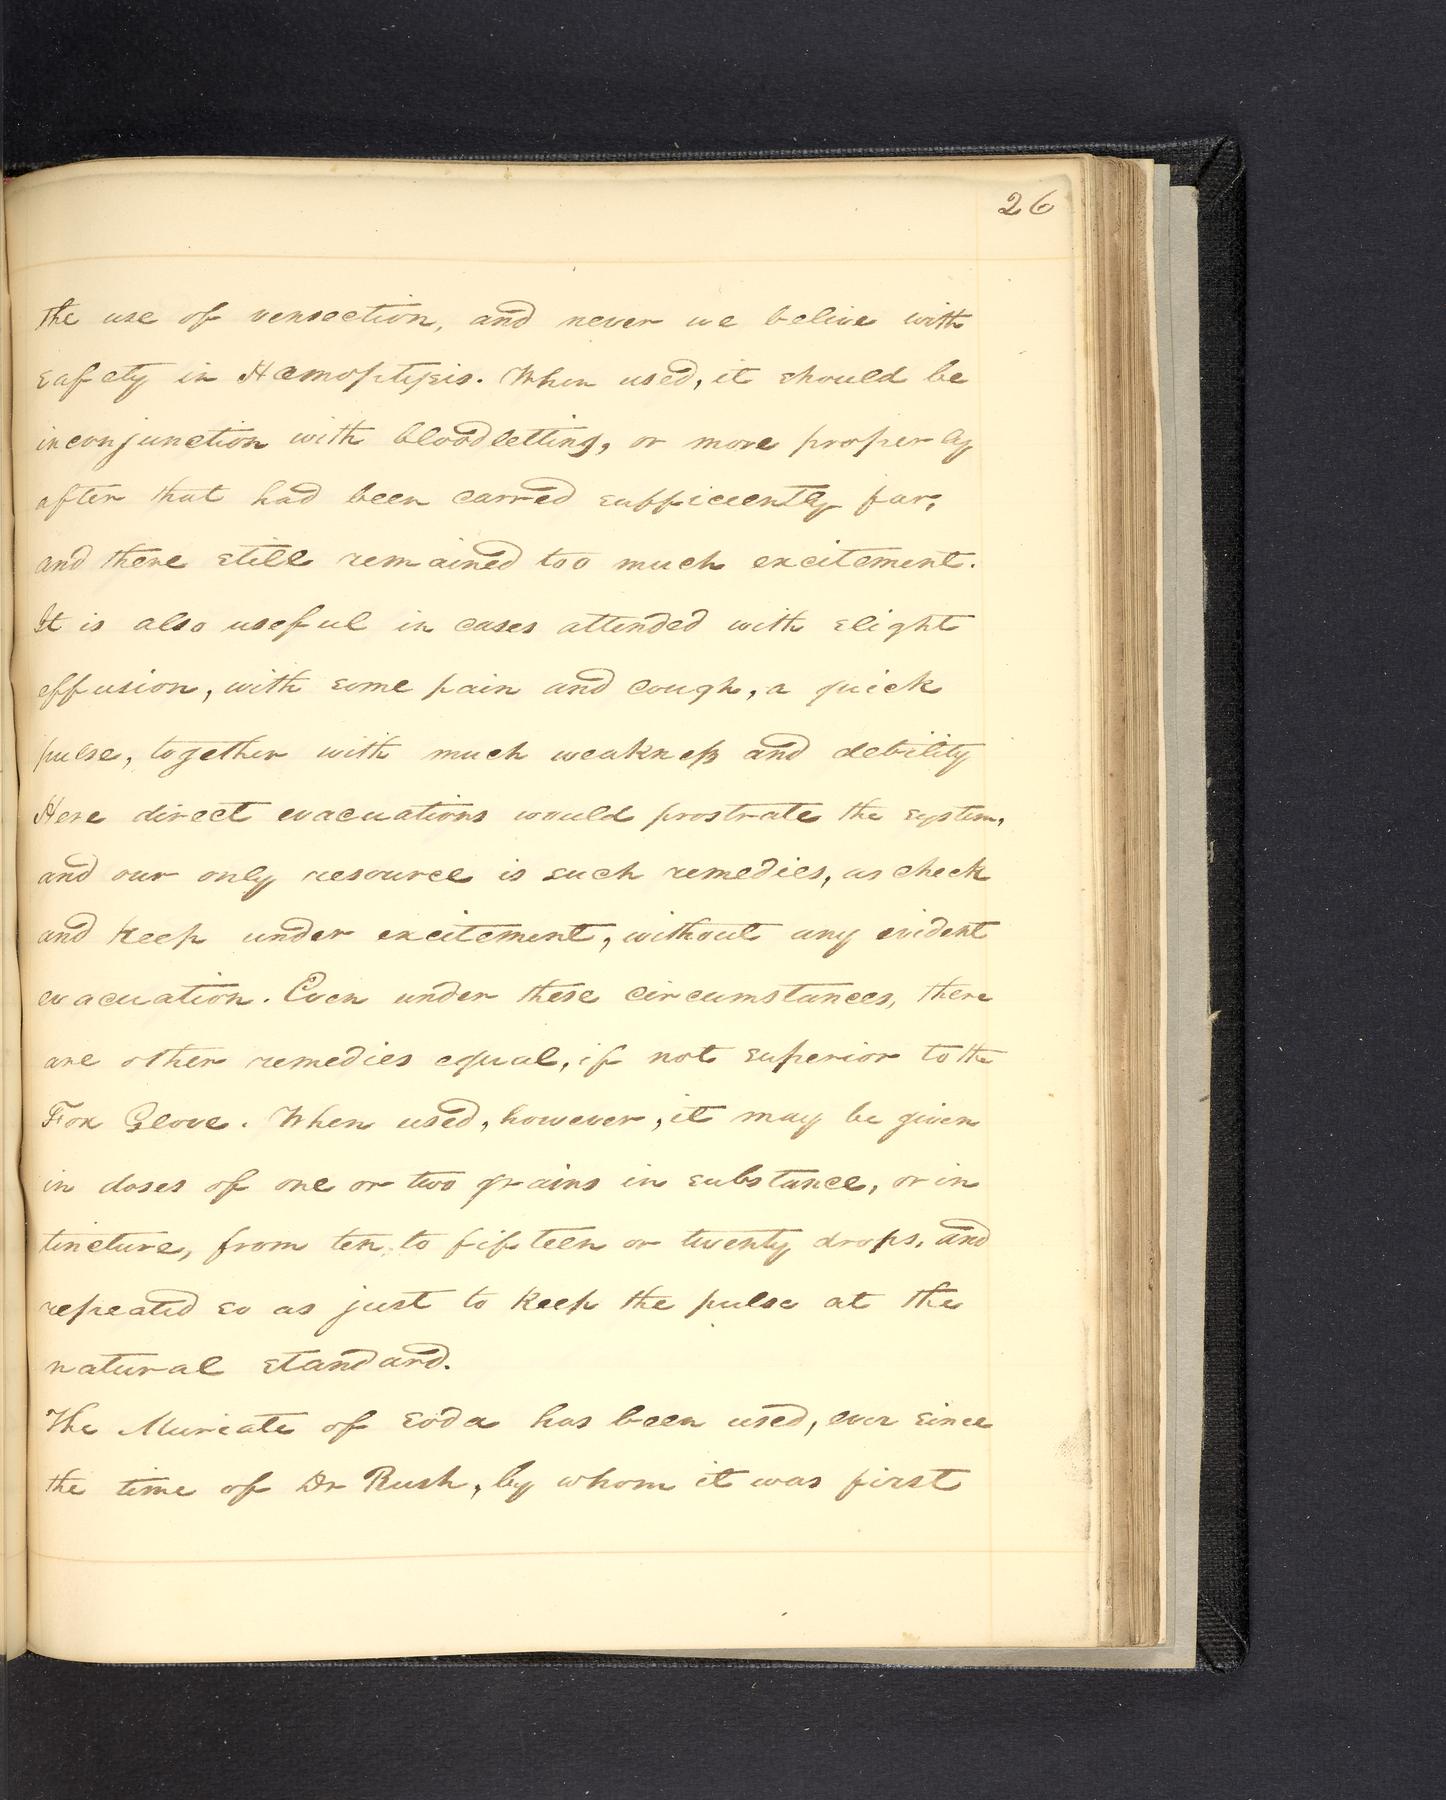 26
the use of vensection, and never we belive with
safety in Hæmoptysis. When used, it should be
in conjunction with bloodletting, or more properly
after that had been carred sufficiently far,
and there still remained too much excitement.
It is also useful in cases attended with slight
effusion, with some pain and cough, a quick
pulse, together with much weakness and debility
Here direct evacuations would prostrate the system,
and our only resource is such remedies, as check
and keep under excitement, without any evident
evacuation. Even under these circumstances, there
are other remedies equal, if not superior to the
Fox Glove. When used, however, it may be given
in doses of one or two grains in substance, or in
tincture, from ten to fifteen or twenty drops, and
repeated so as just to keep the pulse at the
natural standard.
The Muriate of Soda has been used, ever since
the time of Dr Rush, by whom it was first